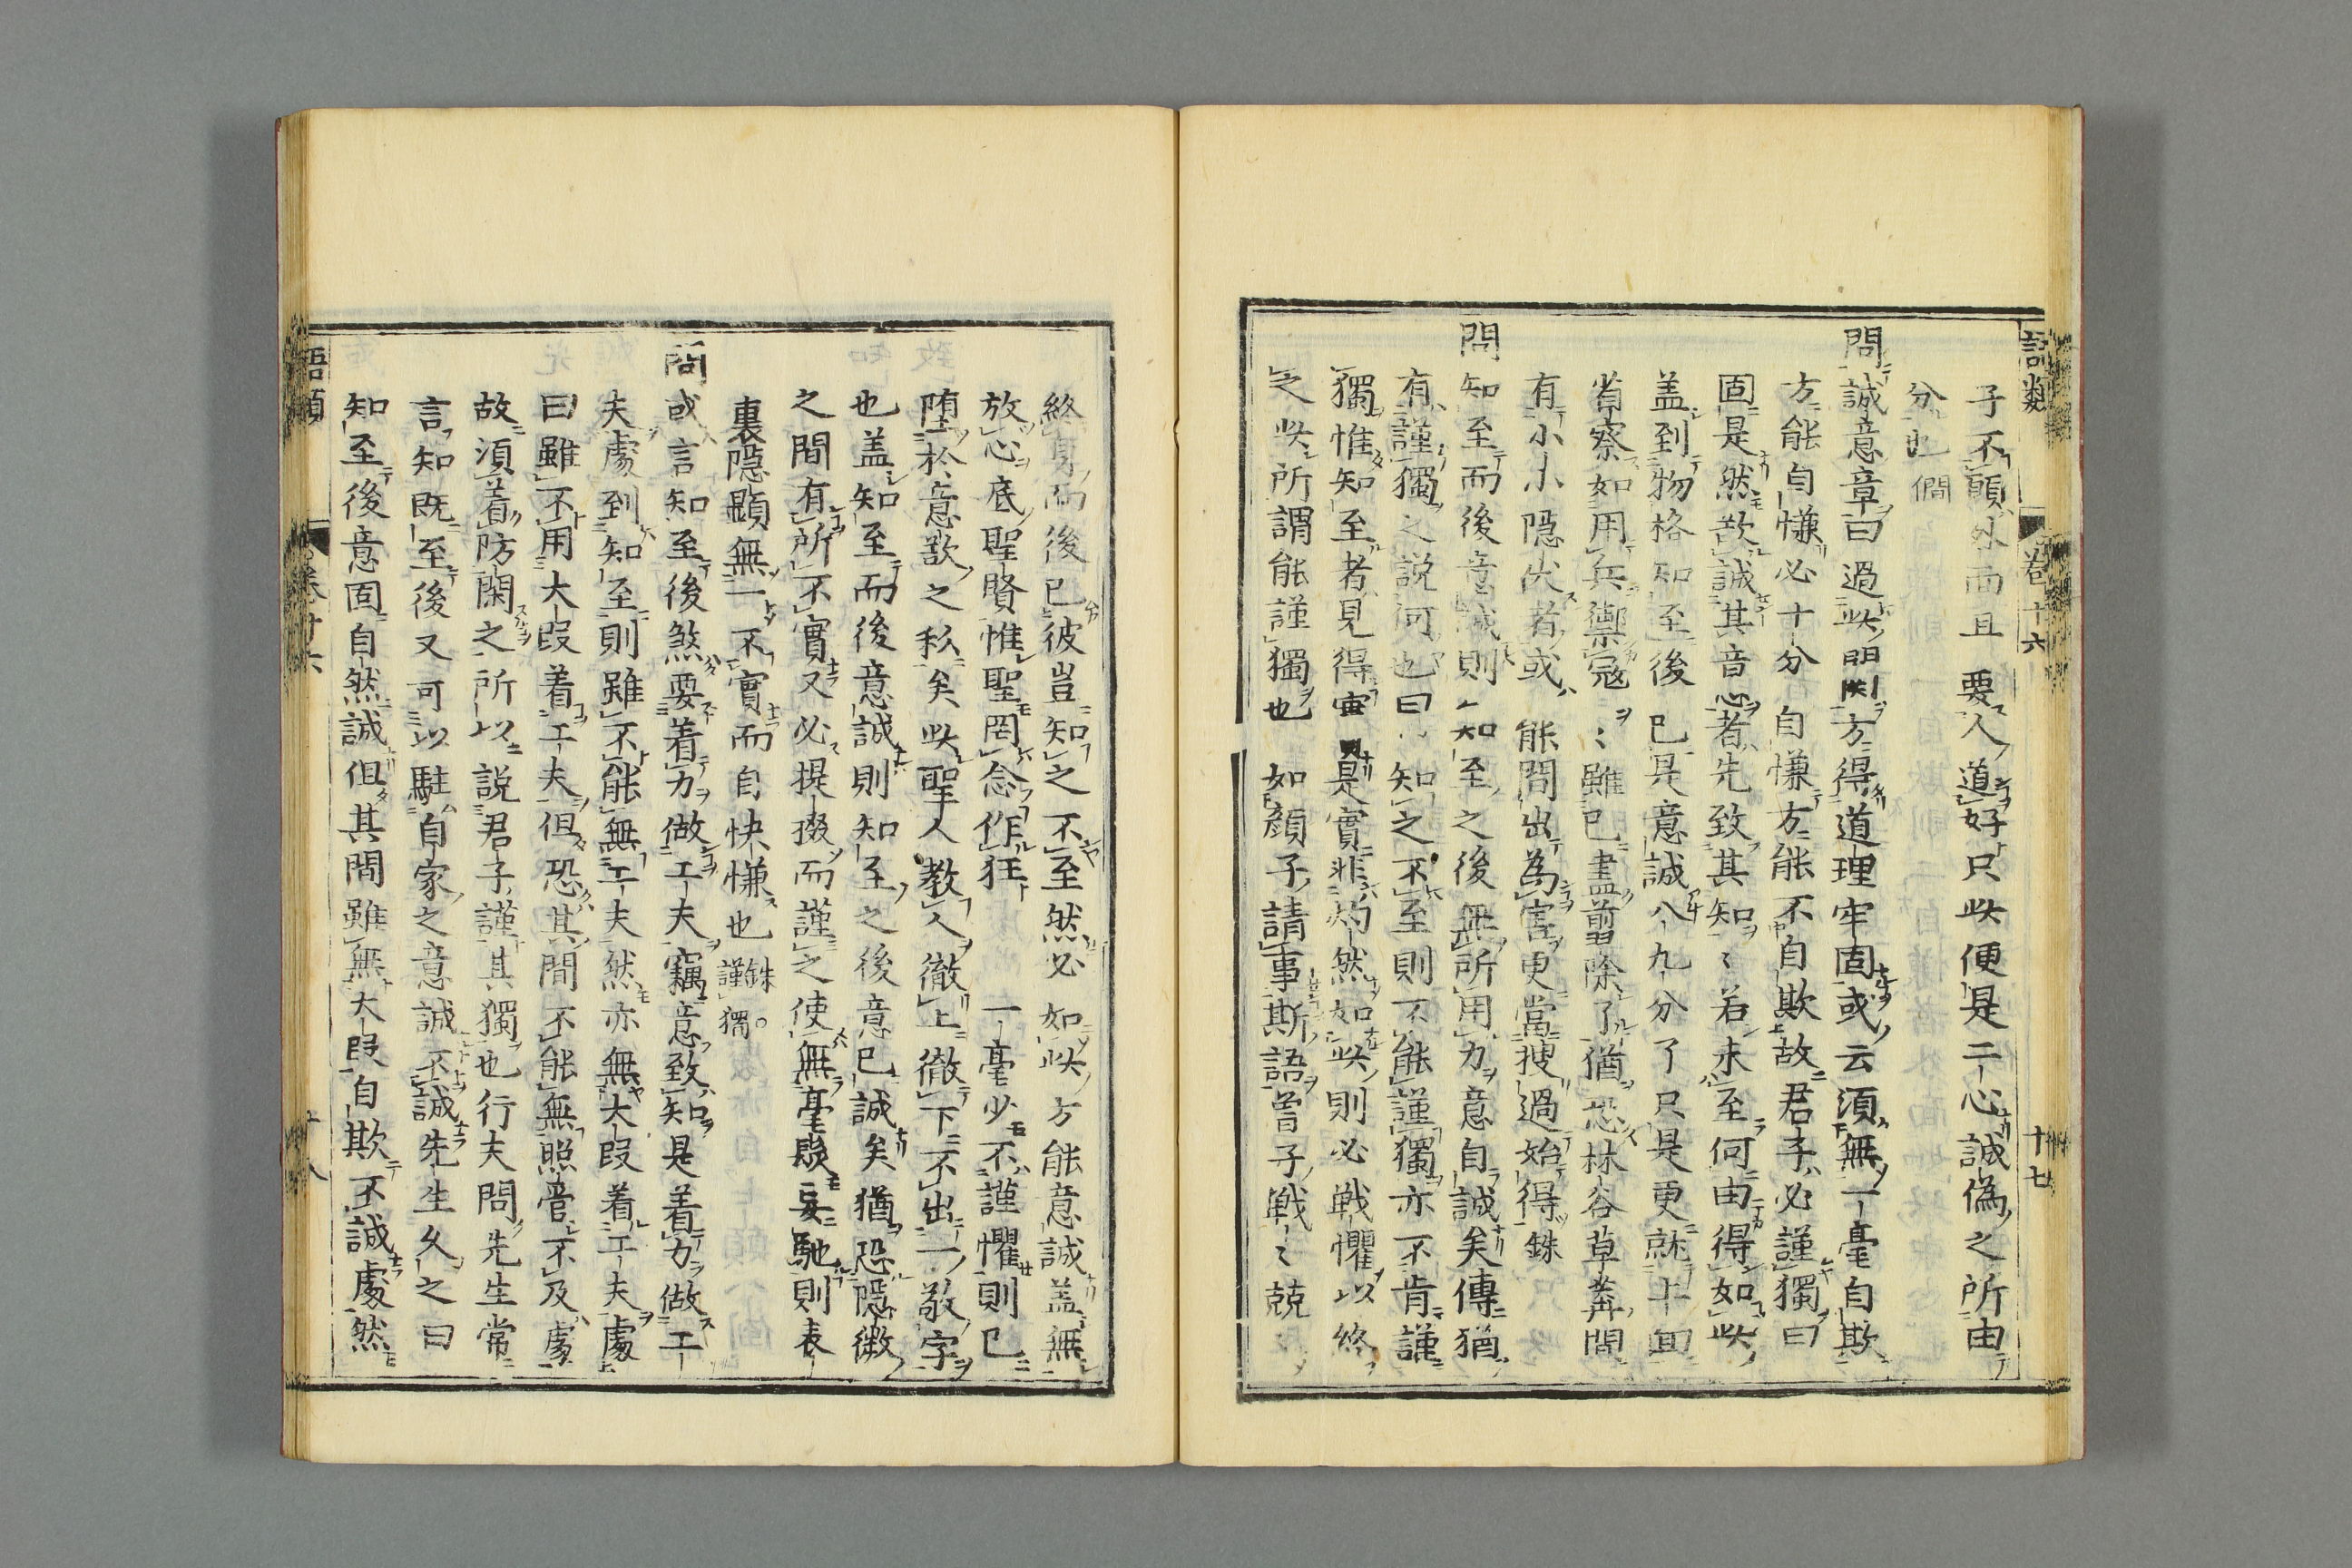 語類 卷十六 十七
子不願外而且要人道好只此便是二心誠偽之所由
分也僩
問誠意章曰過此関方得道理牢固或云須無一毫自欺
方能自慊必十分自慊方能不自欺故君子必謹獨曰
固是然欲誠其意者先致其知〻若未至何由得如此
盖到物格知至後已是意誠八九分了只是更就上面
省察如用兵禦冦〻雖已盡翦除了猶恐林谷草莽間
有小小隱伏者或能間出為害更當搜過始得銖
問知至而後意誠則知至之後無所用力意自誠矣傳猶
有謹獨之説何也曰知之不至則不能謹獨亦不肯謹
獨惟知至者見得實是實非灼然如此則必戰懼以終
之此所謂能謹獨也如顔子請事斯語曾子戰〻兢〻
終身而後已彼豈知之不至然必如此方能意誠盖無
放心底聖賢惟聖罔念作狂一毫少不謹懼則已
堕於意欲之私矣此聖人教人徹上徹下不出一敬字
也盖知至而後意誠則知至之後意已誠矣猶恐隱微
之間有所不實又必提掇而謹之使無毫髮妄馳則表
裏隱顯無一不實而自快慊也銖謹獨。
問或言知至後煞要着力做工夫竊意致知是着力做工
夫處到知至則雖不能無工夫然亦無大段着工夫處
曰雖不用大段着工夫但恐其間不能無照管不及處
故須着防閑之所以説君子謹其獨也行夫問先生常
言知既至後又可以驗自家之意誠不誠先生久之曰
知至後意固自然誠但其間雖無大段自欺不誠處然
語類 卷十六 十八